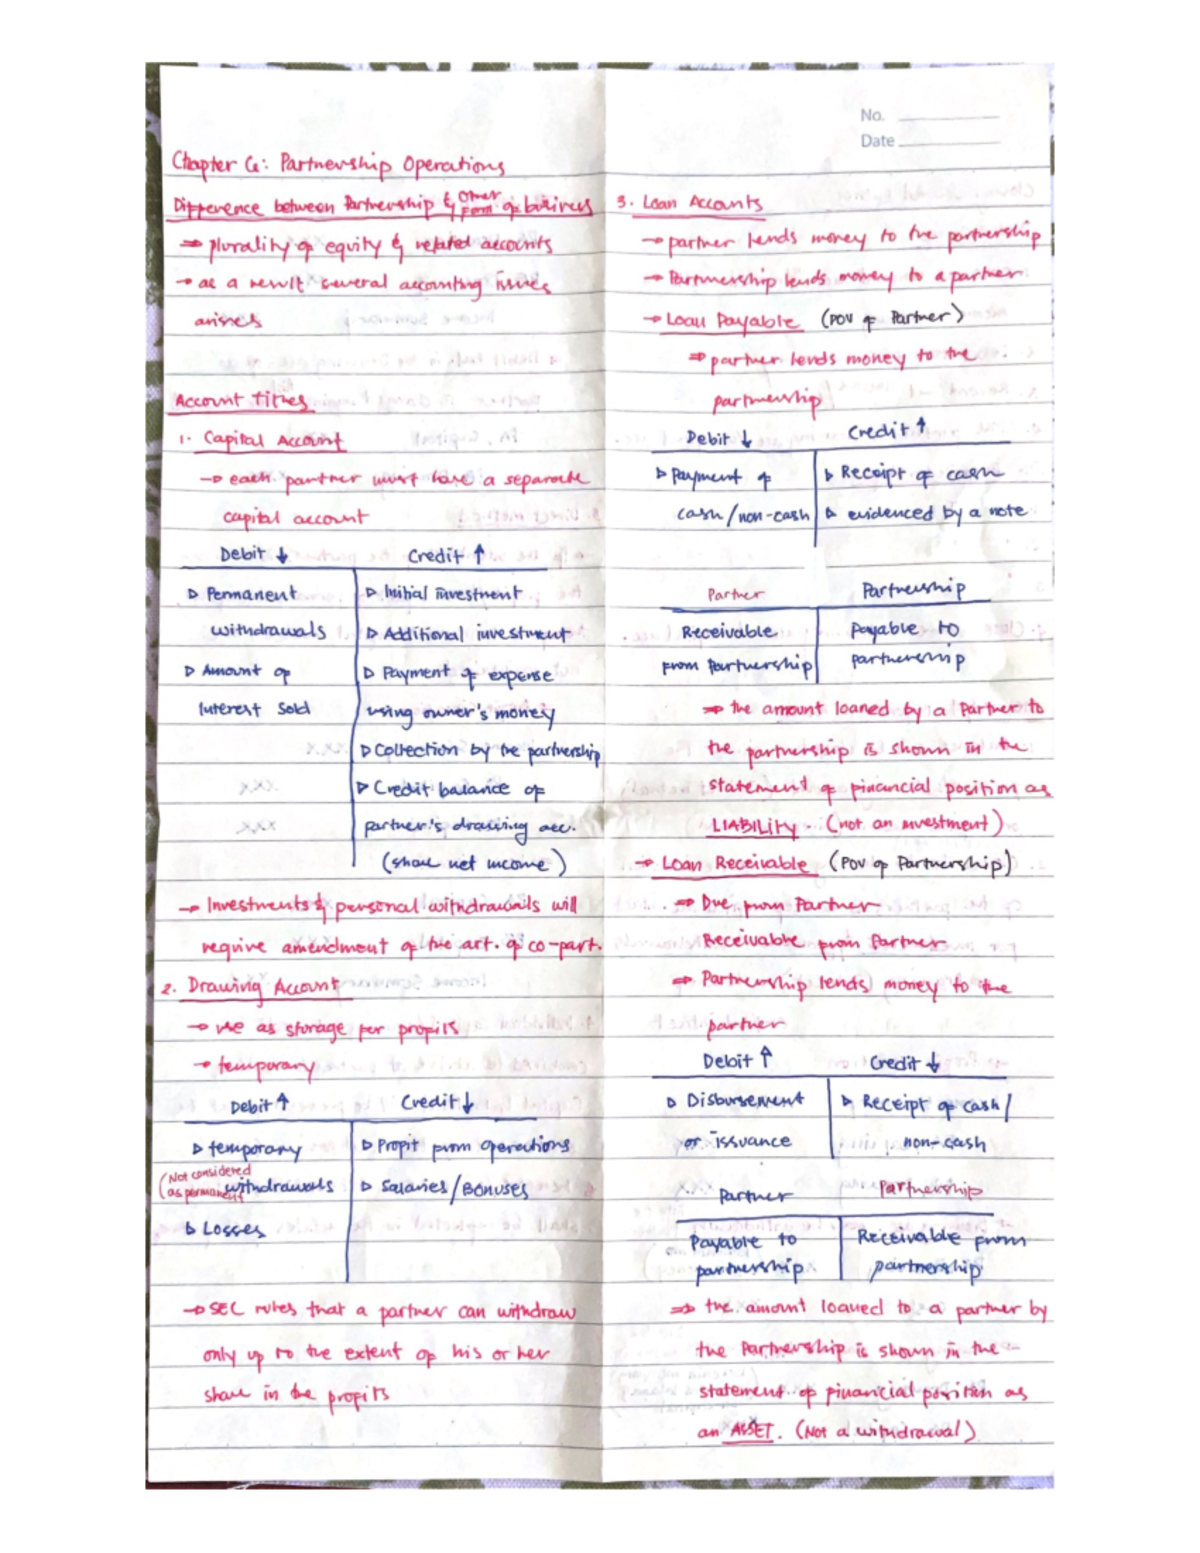 No.
Date
Chapter 6: Partnership Operations
Difference between Partnership & other form of business
⇒ plurality of equity & related accounts
→ as a result several accounting issues
arises
Account Titles
1. Capital Account
→ each partner must have a separate
capital account
Debit ↓ Credit ↑
▷ Permanent
withdrawals
▷ Amount of
Interest Sold
▷ Initial investment
▷ Additional investment
▷ Payment of expense
using owner's money
▷ Collection by the partnership
▷ Credit balance of
partner's drawing acc.
(share net income)
→ Investments & personal withdrawals will
require amendment of the art. of co-part.
2. Drawing Account
→ use as storage for profits
→ temporary
Debit ↑ Credit ↓
▷ temporary
(Not considered
as permanent
withdrawals
▷ Losses
▷ Profit from operations
▷ Salaries/Bonuses
→ SEC rules that a partner can withdraw
only up to the extent of his or her
share in the profits
3. Loan Accounts
→ partner lends money to the partnership
→ Partnership lends money to a partner
→ Loan Payable (POV of Partner)
⇒ partner lends money to the
partnership
Debit ↓ Credit ↑
▷ Payment of
cash/non-cash
▷ Receipt of cash
▷ evidenced by a note
Partner Partnership
Receivable
from Partnership
Payable to
partnership
⇒ the amount loaned by a Partner to
the partnership is shown in the
statement of financial position as
LIABILITY. (not an investment)
→ Loan Receivable (POV of Partnership)
⇒ Due from Partner
Receivable from Partner
⇒ Partnership lends money to the
partner
Debit ↑ Credit ↓
▷ Disbursement
or issuance
▷ Receipt of cash/
non-cash
Partner Partnership
Payable to
partnership
Receivable from
partnership
⇒ the amount loaned to a partner by
the Partnership is shown in the
statement of financial position as
an ASSET. (Not a withdrawal)